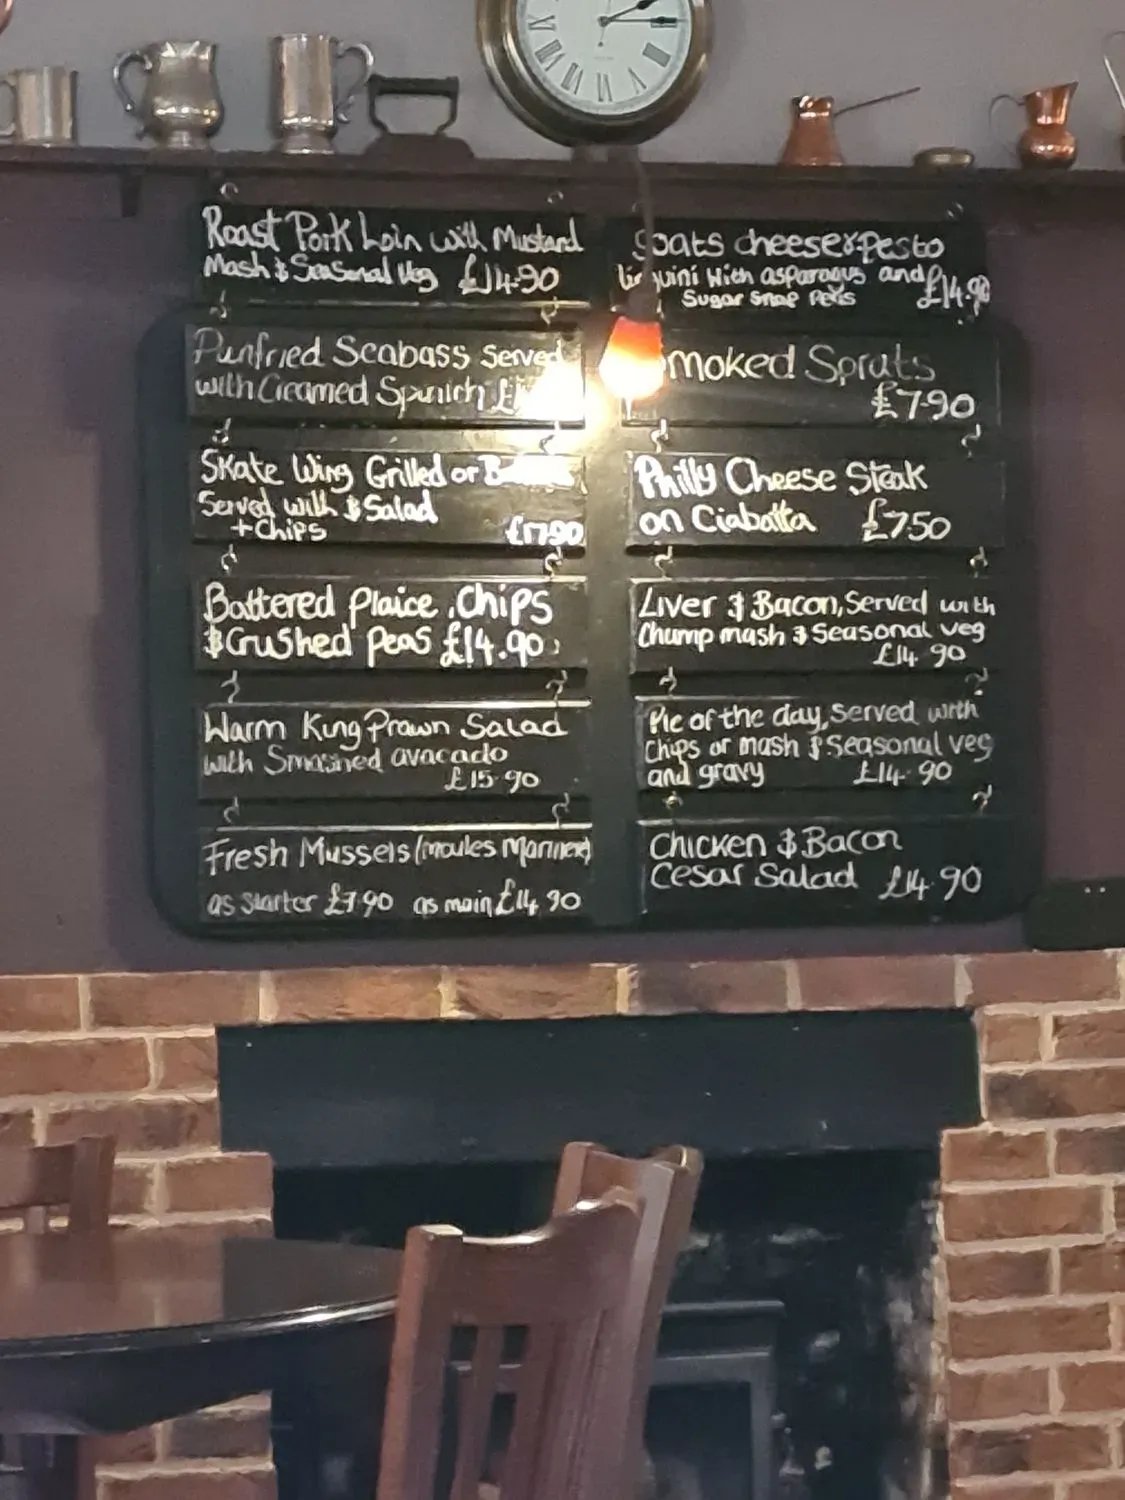 Roast Pork Loin with Mustard
Mash & Seasonal Veg £14.90
Panfried Seabass Served
with Creamed Spinich
Skate Wing Grilled or
Served with & Salad
+ Chips £17.90
Battered Plaice, Chips
& Crushed Peas £14.90
Warm King Prawn Salad
with Smashed avacado
£15.90
Fresh Mussels (moules Marinere)
as starter £7.90 as main £14.90
goats cheese & pesto
linguini with asparagus and
Sugar Snap Peas £14.90
Smoked Sprats
£7.90
Philly Cheese Steak
on Ciabatta £7.50
Liver & Bacon, Served with
Chump mash & Seasonal veg
£14.90
Pie of the day, Served with
chips or mash & Seasonal veg
and gravy £14.90
Chicken & Bacon
Cesar Salad £14.90